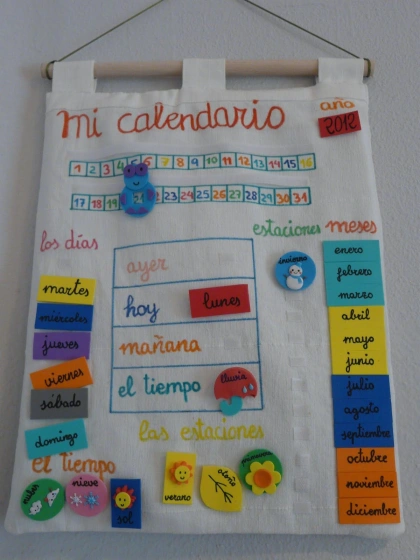 mi calendario
año
2012
1 2 3 4 5 6 7 8 9 10 11 12 13 14 15 16
17 18 19 21 23 24 25 26 27 28 29 30 31
estaciones
meses
invierno
enero
febrero
marzo
abril
mayo
junio
julio
agosto
septiembre
octubre
noviembre
diciembre
los días
martes
miércoles
jueves
viernes
sábado
domingo
ayer
hoy
lunes
mañana
el tiempo
lluvia
las estaciones
verano
otoño
primavera
el tiempo
nubes
nieve
sol